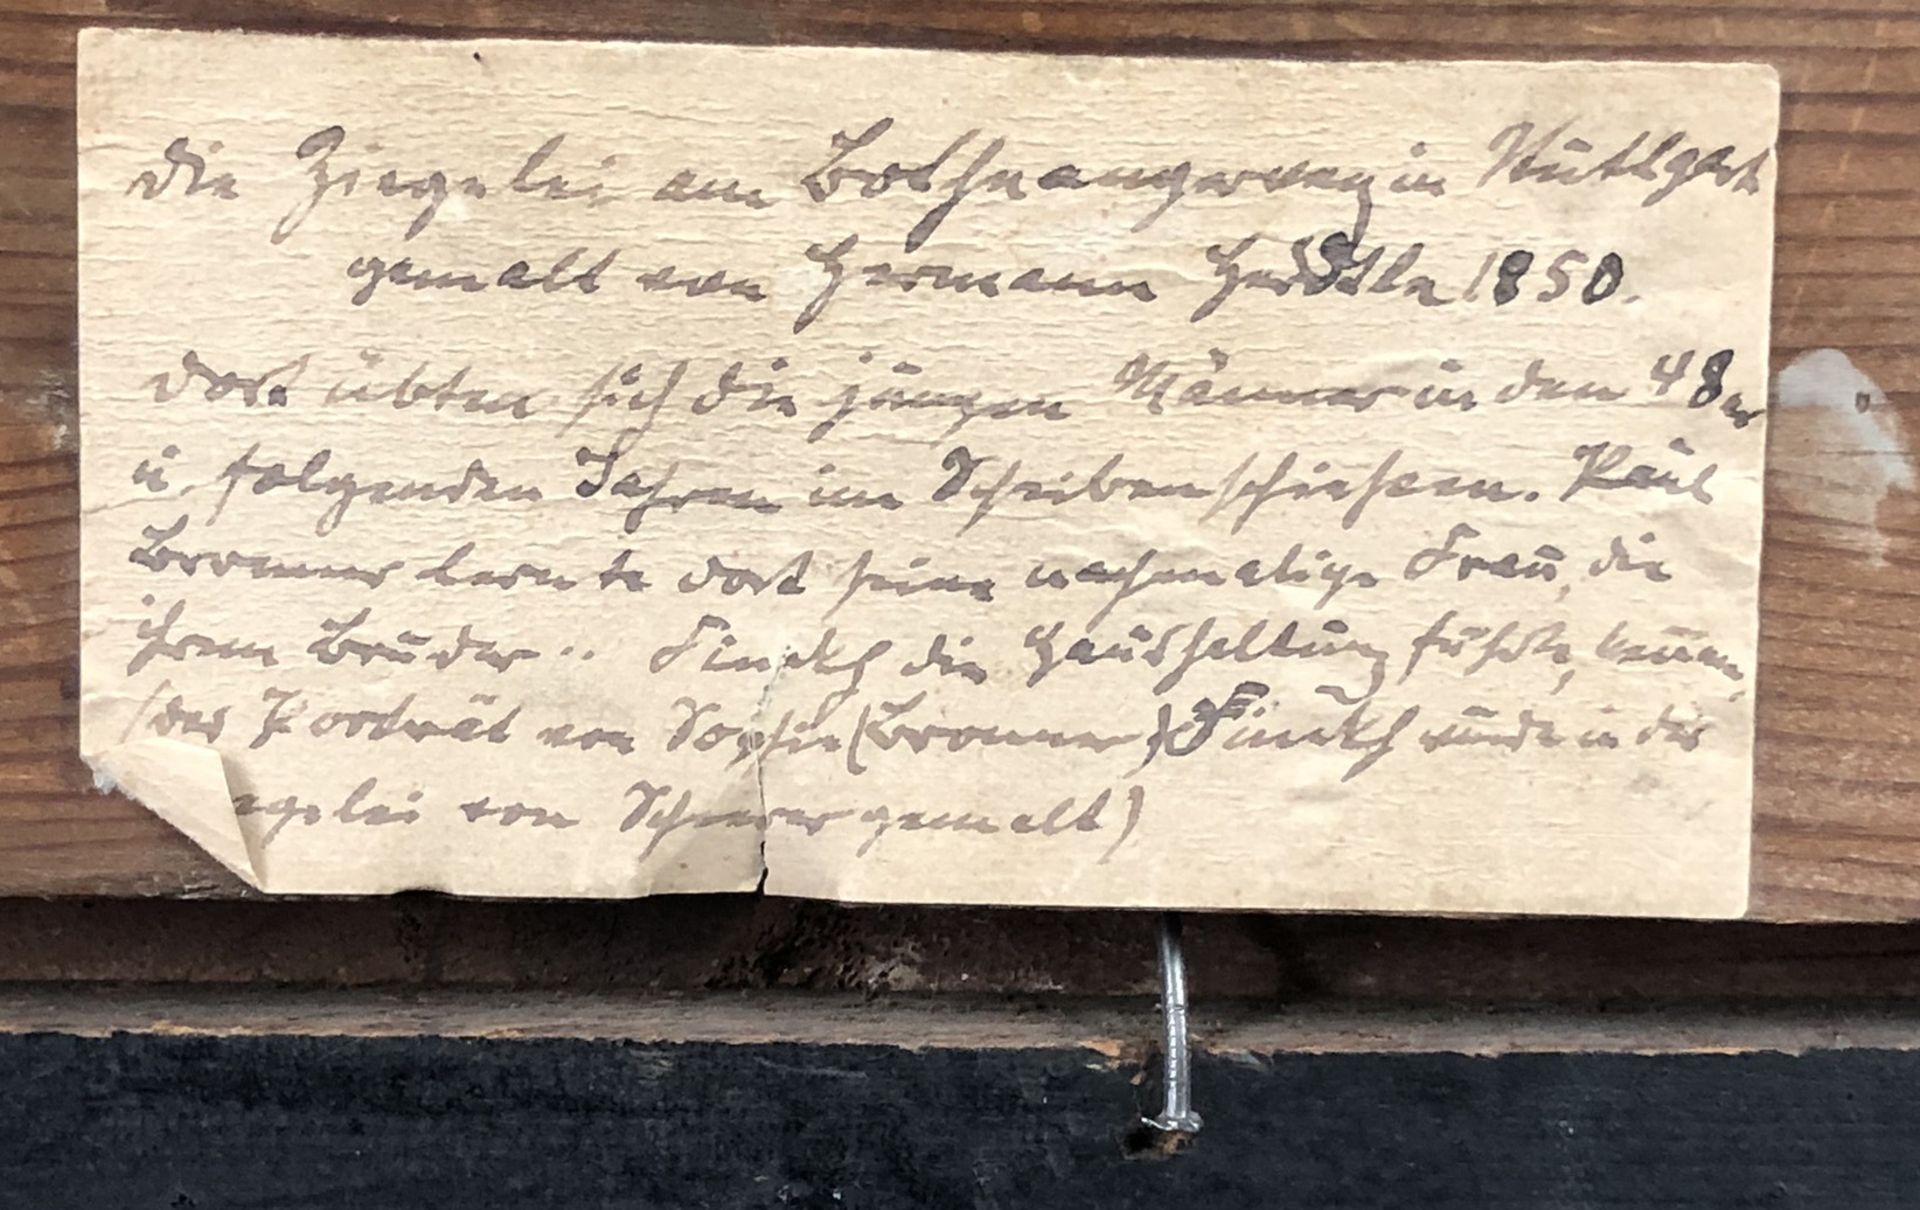 Die Ziegelei am Bothnangerweg in Stuttgart
gemalt von Hermann Herdtle 1850.
Dort übten sich die jungen Männer in den 48er
u. folgenden Jahren im Scheibenschiessen. Paul
Bronner lernte dort seine nachmalige Frau, die
ihrem Bruder .. Finckh die Haushaltung führte, kennen,
(das Porträt von Sophie (Bronner) Finckh wurde in der
egelei von Scheerer gemalt)